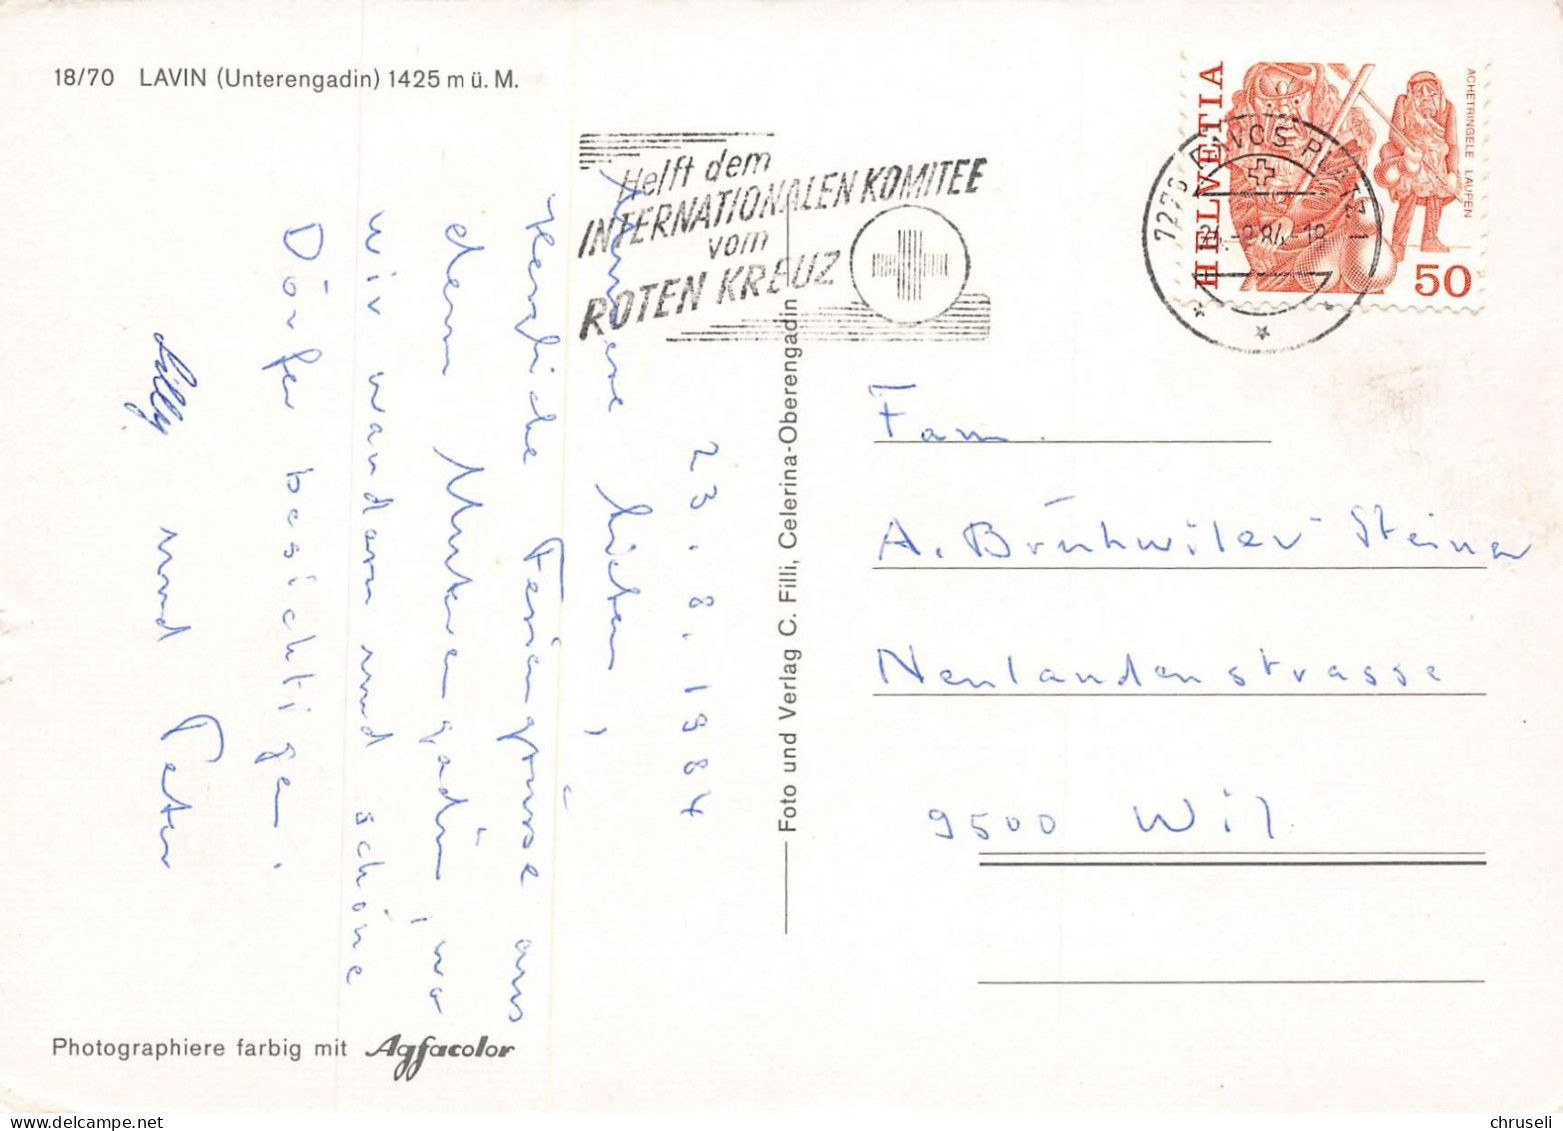 18/70 LAVIN (Unterengadin) 1425 m ü. M.
Helft dem
INTERNATIONALEN KOMITEE
vom
ROTEN KREUZ
HELVETIA
ACHETRINGELE LAUPEN
50
7270 DAVOS PLATZ 1
24.-8.84-18
23.8.1984
Lieben,
Herzliche Feriengrüsse aus
dem Unterengadin, wo
wir wandern und schöne
Dörfer besichtigen.
Lilly und Peter
Foto und Verlag C. Filli, Celerina-Oberengadin
Fam.
A. Brühwiler-Steiner
Neulandenstrasse
9500 Wil
Photographiere farbig mit Agfacolor
© chruseli